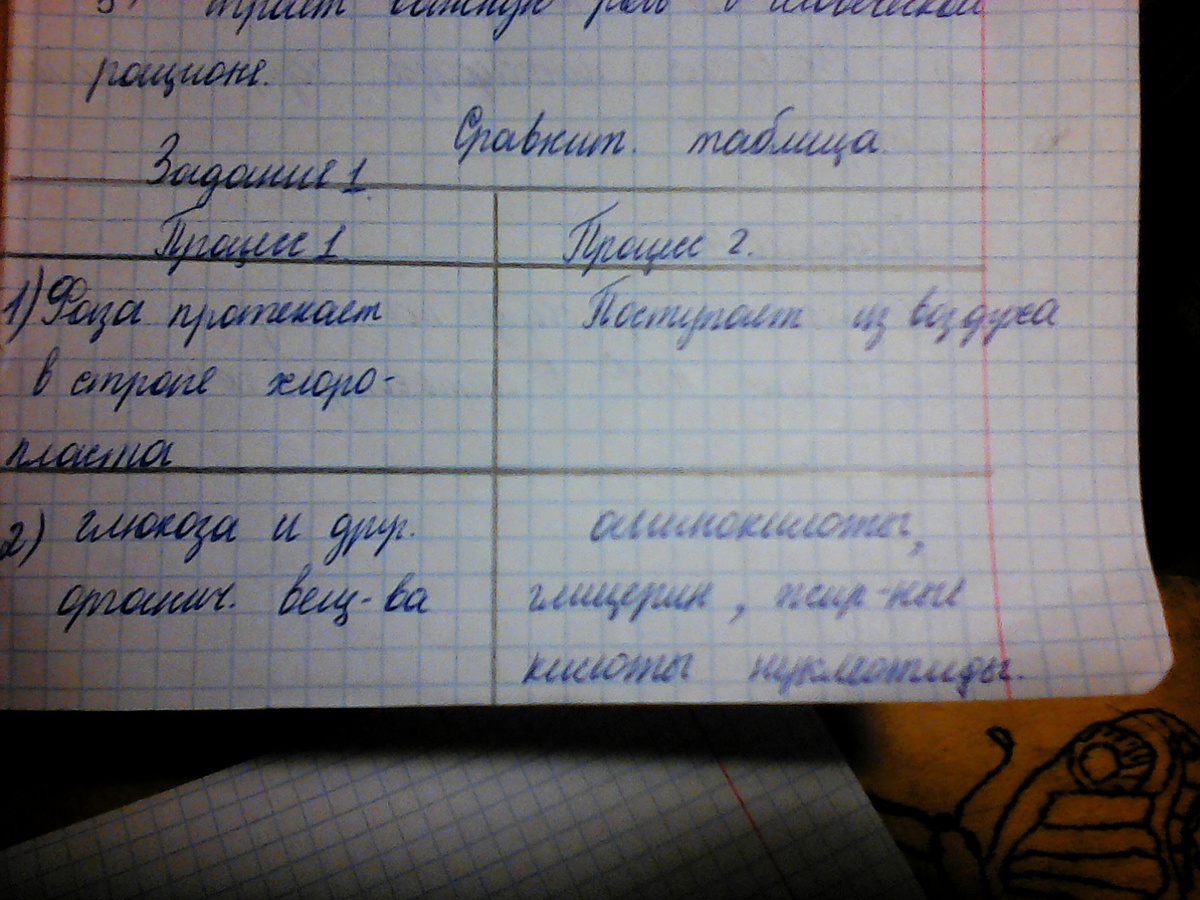 играет важную роль в человеческой
рационе.
Сравнит. таблица
Задание 1.
Процесс 1
Процесс 2.
1) Фаза протекает
в строме хлоро-
пласта
Поступает из воздуха
2) глюкоза и друг.
органич. вещ-ва
аминокислоты,
глицерин, жир-ные
кислоты нуклеотиды.